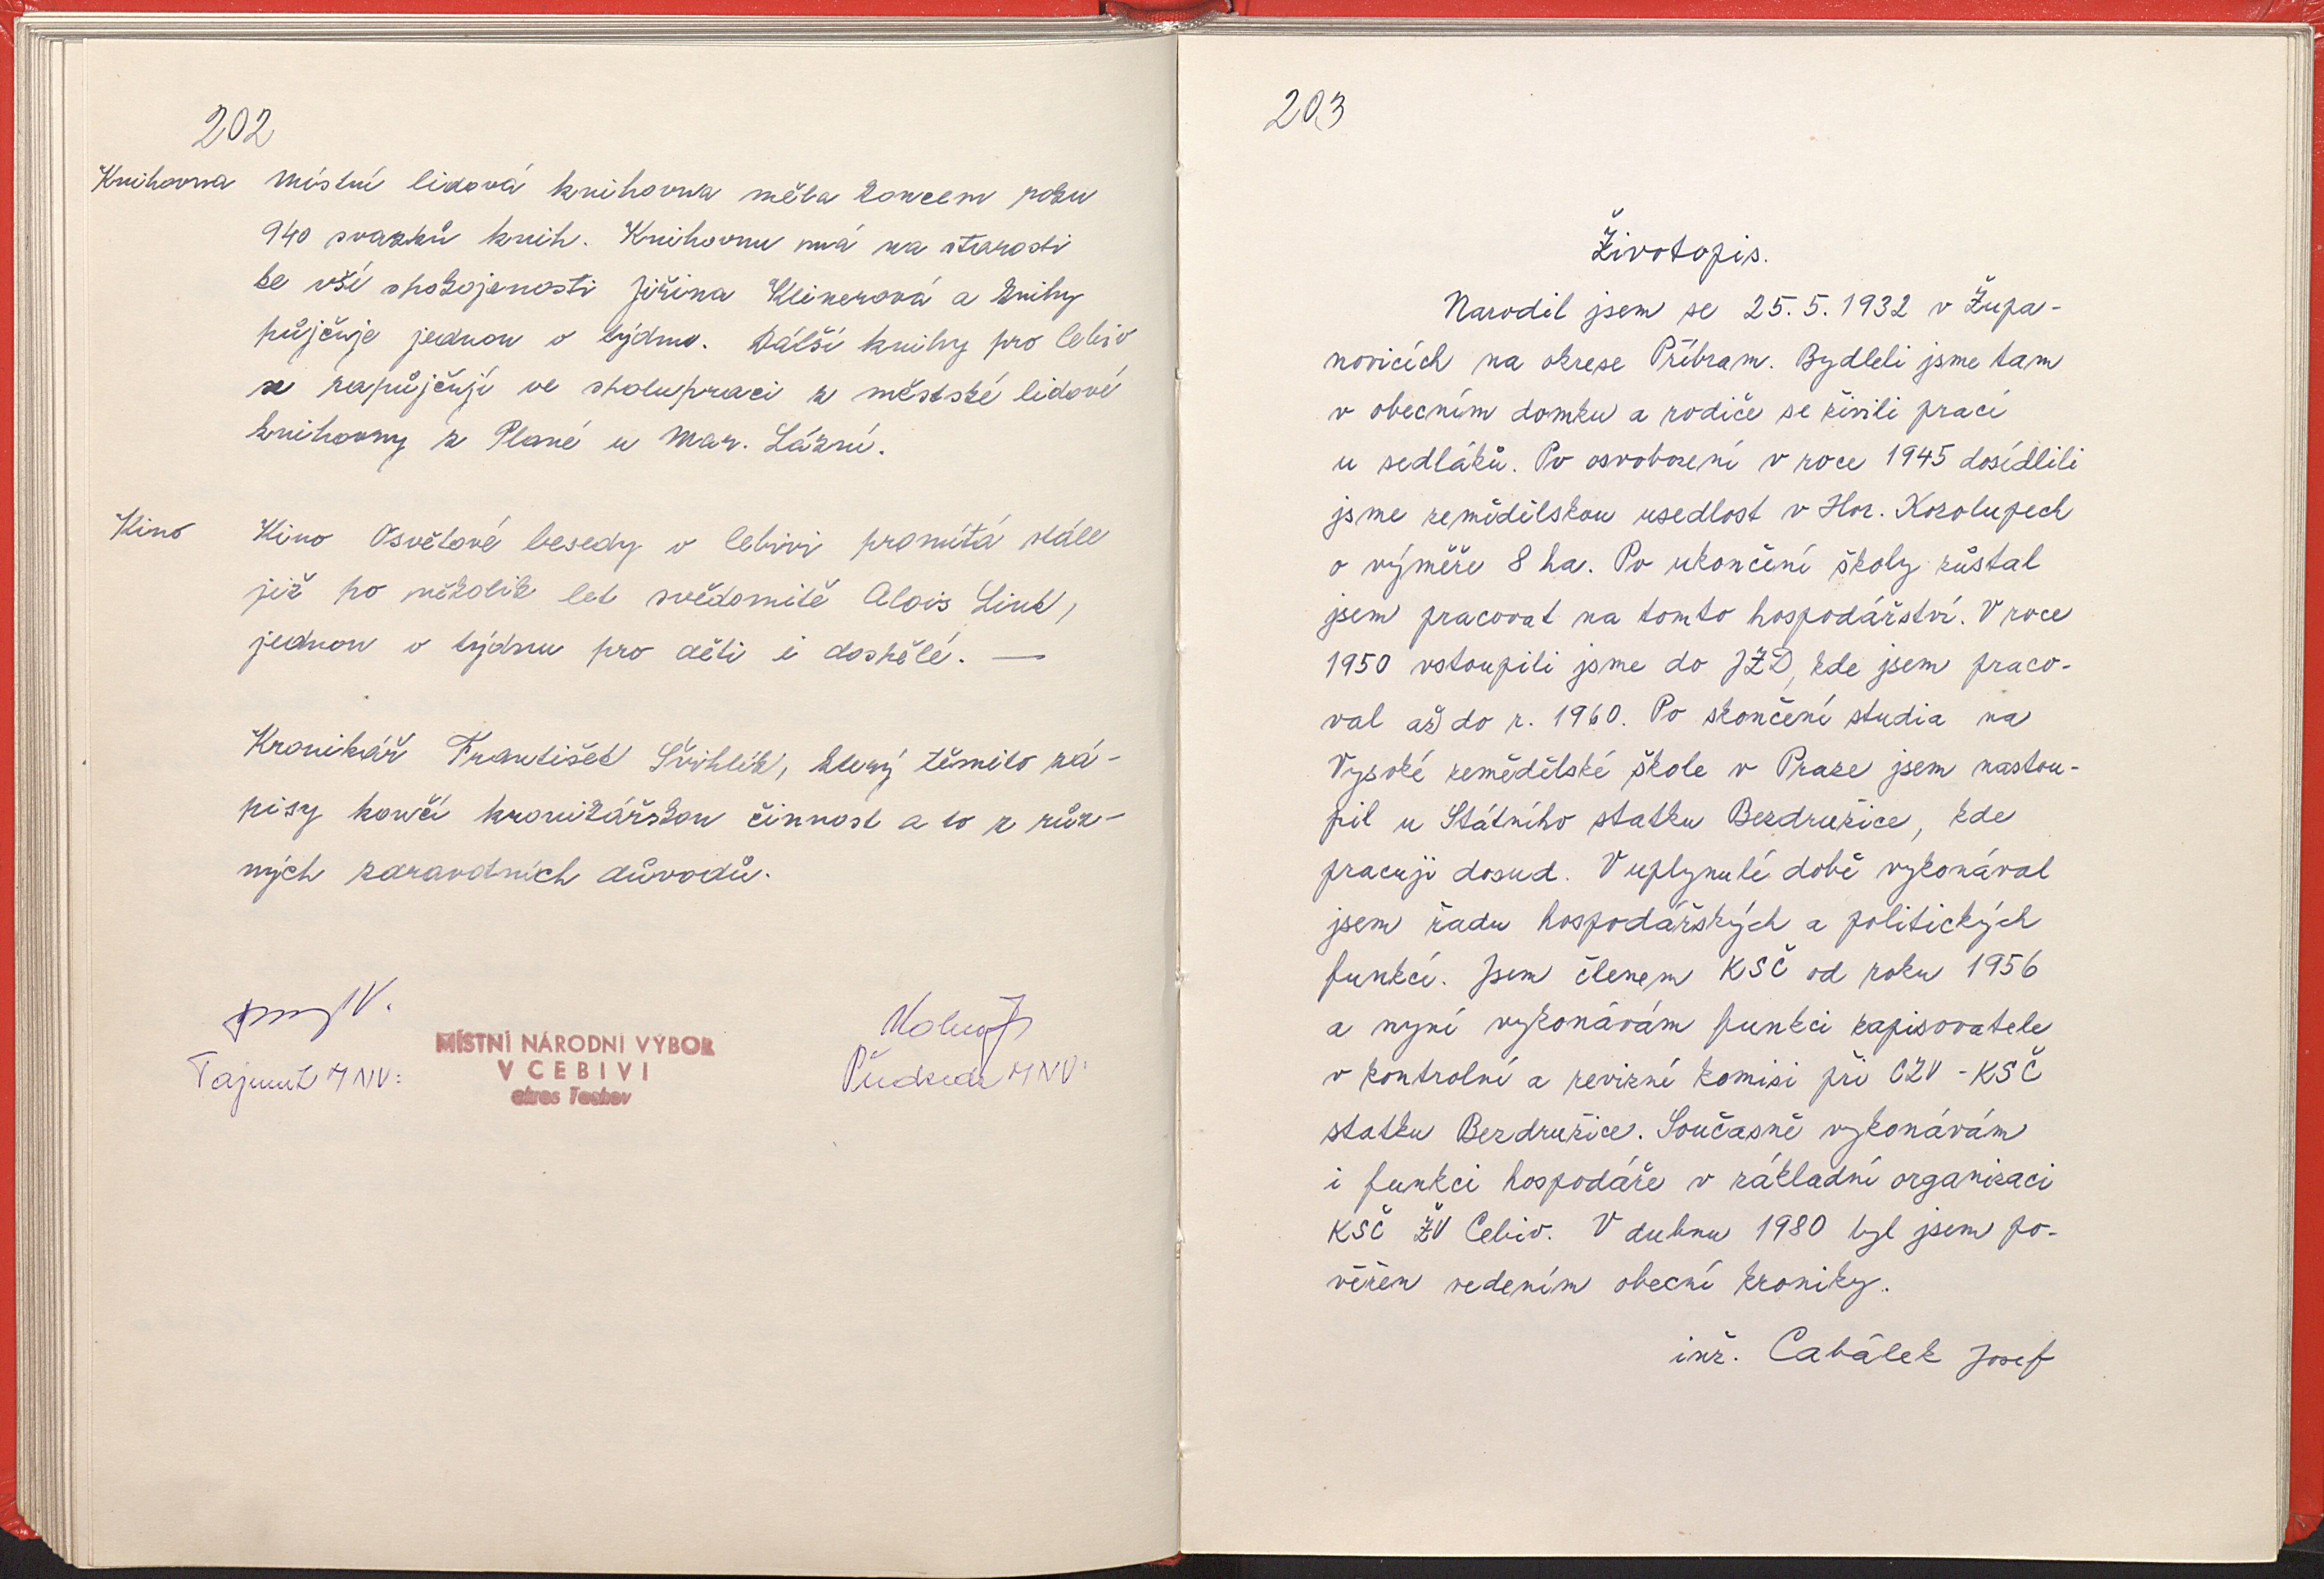 202
Knihovna Místní lidová knihovna měla koncem roku
940 svazků knih. Knihovnu má na starosti
ke vší spokojenosti Jiřina Klinerová a knihy
půjčuje jednou v týdnu. Další knihy pro Cebiv
se zapůjčují ve spolupraci z městské lidové
knihovny z Plané u Mar. Lázní.
Kino Kino Osvětové besedy v Cebivi promítá stále
již po několik let svědomitě Alois Link,
jednou v týdnu pro děti i dospělé. —
Kronikář František Švihlík, který těmito zá-
pisy končí kronikářskou činnost a to z růz-
ných zdravotních důvodů.
Tajemník MNV:
MÍSTNÍ NÁRODNÍ VÝBOR
V CEBIVI
okres Tachov
Předseda MNV:
203
Životopis.
Narodil jsem se 25.5.1932 v Župa-
novicích na okrese Příbram. Bydleli jsme tam
v obecním domku a rodiče se živili prací
u sedláků. Po osvobození v roce 1945 dosídlili
jsme zemědělskou usedlost v Hor. Kozolupech
o výměře 8 ha. Po ukončení školy zůstal
jsem pracovat na tomto hospodářství. V roce
1950 vstoupili jsme do JZD, kde jsem praco-
val až do r. 1960. Po skončení studia na
Vysoké zemědělské škole v Praze jsem nastou-
pil u Státního statku Bezdružice, kde
pracuji dosud. V uplynulé době vykonával
jsem řadu hospodářských a politických
funkcí. Jsem členem KSČ od roku 1956
a nyní vykonávám funkci zapisovatele
v kontrolní a revizní komisi při CZV - KSČ
statku Bezdružice. Současně vykonávám
i funkci hospodáře v základní organizaci
KSČ ŽV Cebiv. V dubnu 1980 byl jsem po-
věřen vedením obecní kroniky.
inž. Cabálek Josef